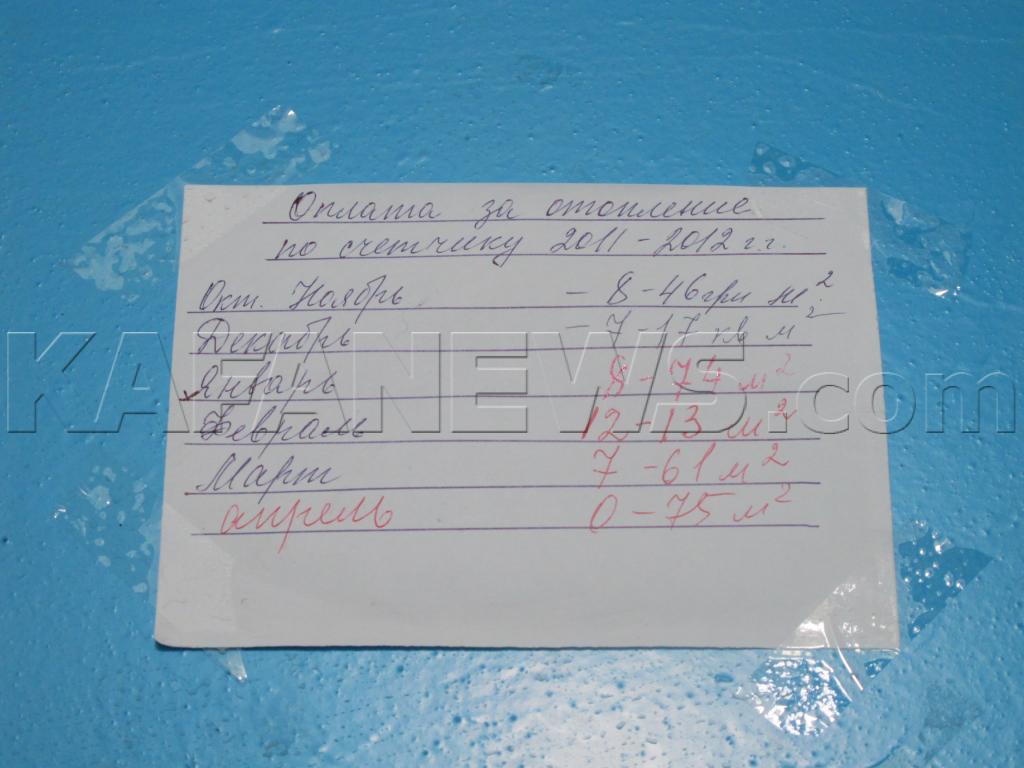 Оплата за отопление
по счетчику 2011-2012 г.г.
Окт. Ноябрь - 8-46 грн м²
Декабрь - 7-17 кв м²
Январь 8-74 м²
Февраль 12-13 м²
Март 7-61 м²
апрель 0-75 м²
KAFANEWS.com